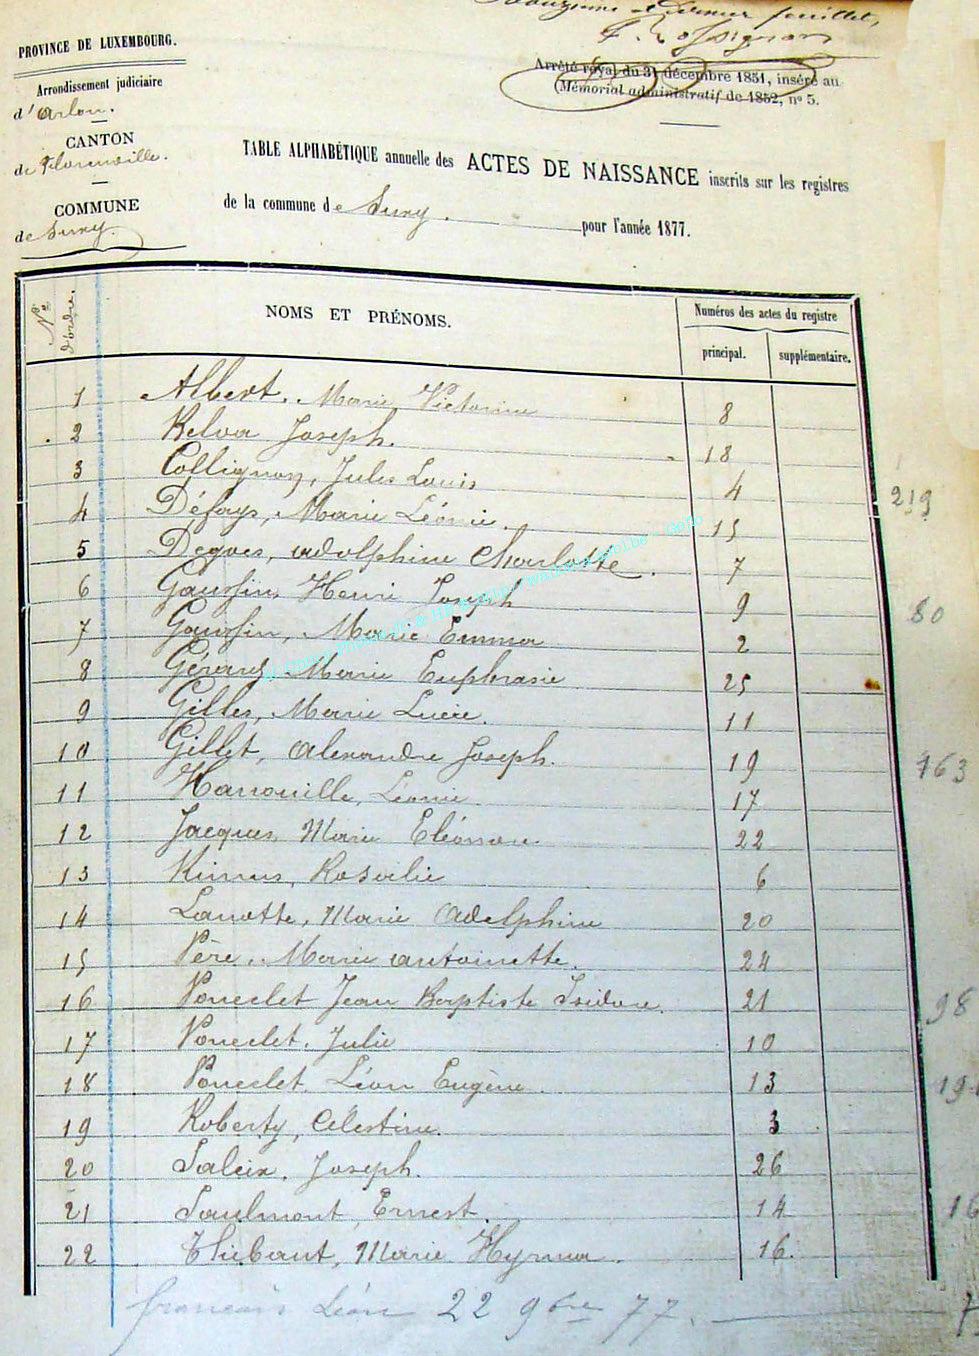 Douzième et dernier feuillet,
PROVINCE DE LUXEMBOURG.
Arrondissement judiciaire
d'Arlon.
CANTON
de Florenville.
COMMUNE
de Suxy.
Arrêté royal du 31 décembre 1851, inséré au
(Mémorial administratif de 1852, n° 5.
TABLE ALPHABÉTIQUE annuelle des ACTES DE NAISSANCE inscrits sur les registres
de la commune de Suxy. pour l'année 1877.
Nos d'ordre.
NOMS ET PRÉNOMS.
Numéros des actes du registre
principal.
supplémentaire.
1 Albert, Marie Victorine 8
2 Belva Joseph. 18
3 Collignon, Jules Louis 4
4 Défays, Marie Léonie. 15
5 Degves, Adolphine Charlotte. 7
6 Gaussin, Henri Joseph 9
7 Gaussin, Marie Emma 2
8 Gérard Marie Euphrasie 25
9 Gilles, Marie Lucie. 11
10 Gillet, Alexandre Joseph. 19
11 Hanouille, Léonie 17
12 Jacques, Marie Eléonore 22
13 Rosalie 6
14 Lanotte, Marie Adelphine 20
15 Père, Marie Antoinette. 24
16 Poncelet Jean Baptiste Isidore. 21
17 Poncelet, Julie 10
18 Poncelet, Léon Eugène 13
19 Roberty, Célestine. 3
20 Saleix, Joseph. 26
21 Saulmont, Ernest. 14
22 Thibaut, Marie Hyrma. 16.
françois Léon 22 9bre 77. 7
219
80
763
98
19
16